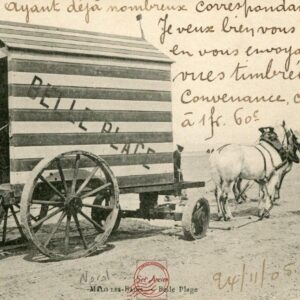 ayant déjà nombreux correspondan
Je veux bien vous
en vous envoya
vues timbrée
Convenance, c
à 1fr. 60c
BELLE PLAGE
MALO-LES-BAINS - Belle Plage
Nord
24/11/05